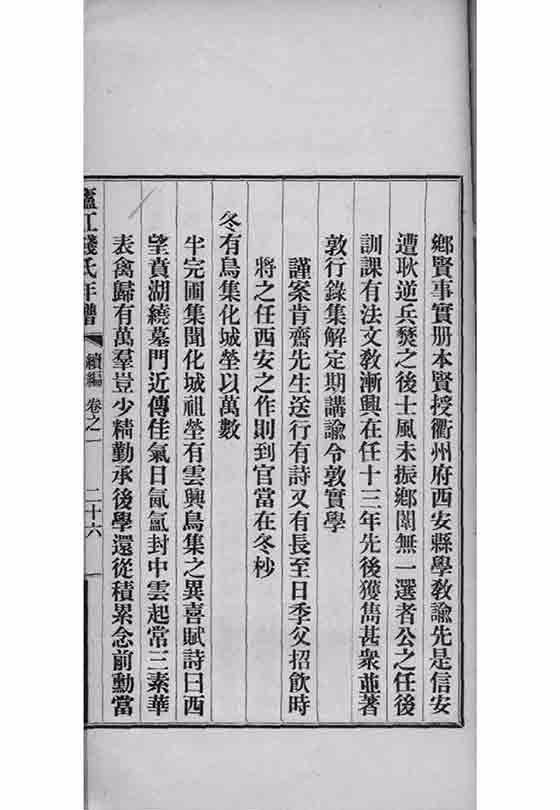 鄉賢事實册本賢授衢州府西安縣學教諭先是信安
遭耿逆兵燹之後士風未振鄉闈無一選者公之任後
訓課有法文教漸興在任十三年先後獲雋甚衆並著
敦行錄集解定期講諭令敦實學
謹案肯齋先生送行有詩又有長至日季父招飲時
將之任西安之作則到官當在冬杪
冬有鳥集化城塋以萬數
半完圃集聞化城祖塋有雲興鳥集之異喜賦詩曰西
望賁湖繞墓門近傳佳氣日氤氳封中雲起常三素華
表禽歸有萬羣豈少精勤承後學還從積累念前勳當
廬江錢氏年譜
續編
卷之一
二十六